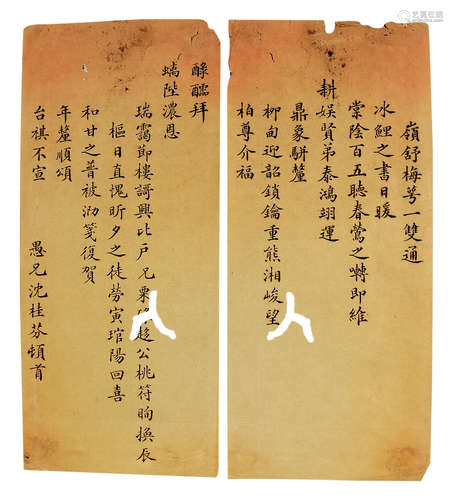 嶺舒梅萼一雙通
冰鯉之書日暖
棠陰百五聽春鶯之囀即維
耕娛賢弟泰鴻翊運
鼎象駢釐
柳甸迎韶鎖鑰重熊湘峻望
柏尊介福
醁醹拜
螭陛濃恩
瑞靄節樓謌興比戶兄粟 趁公桃符昫換辰
樞日直愧昕夕之徒勞寅琯陽回喜
和甘之普被泐箋復賀
年釐順頌
台祺不宣
愚兄沈桂芬頓首